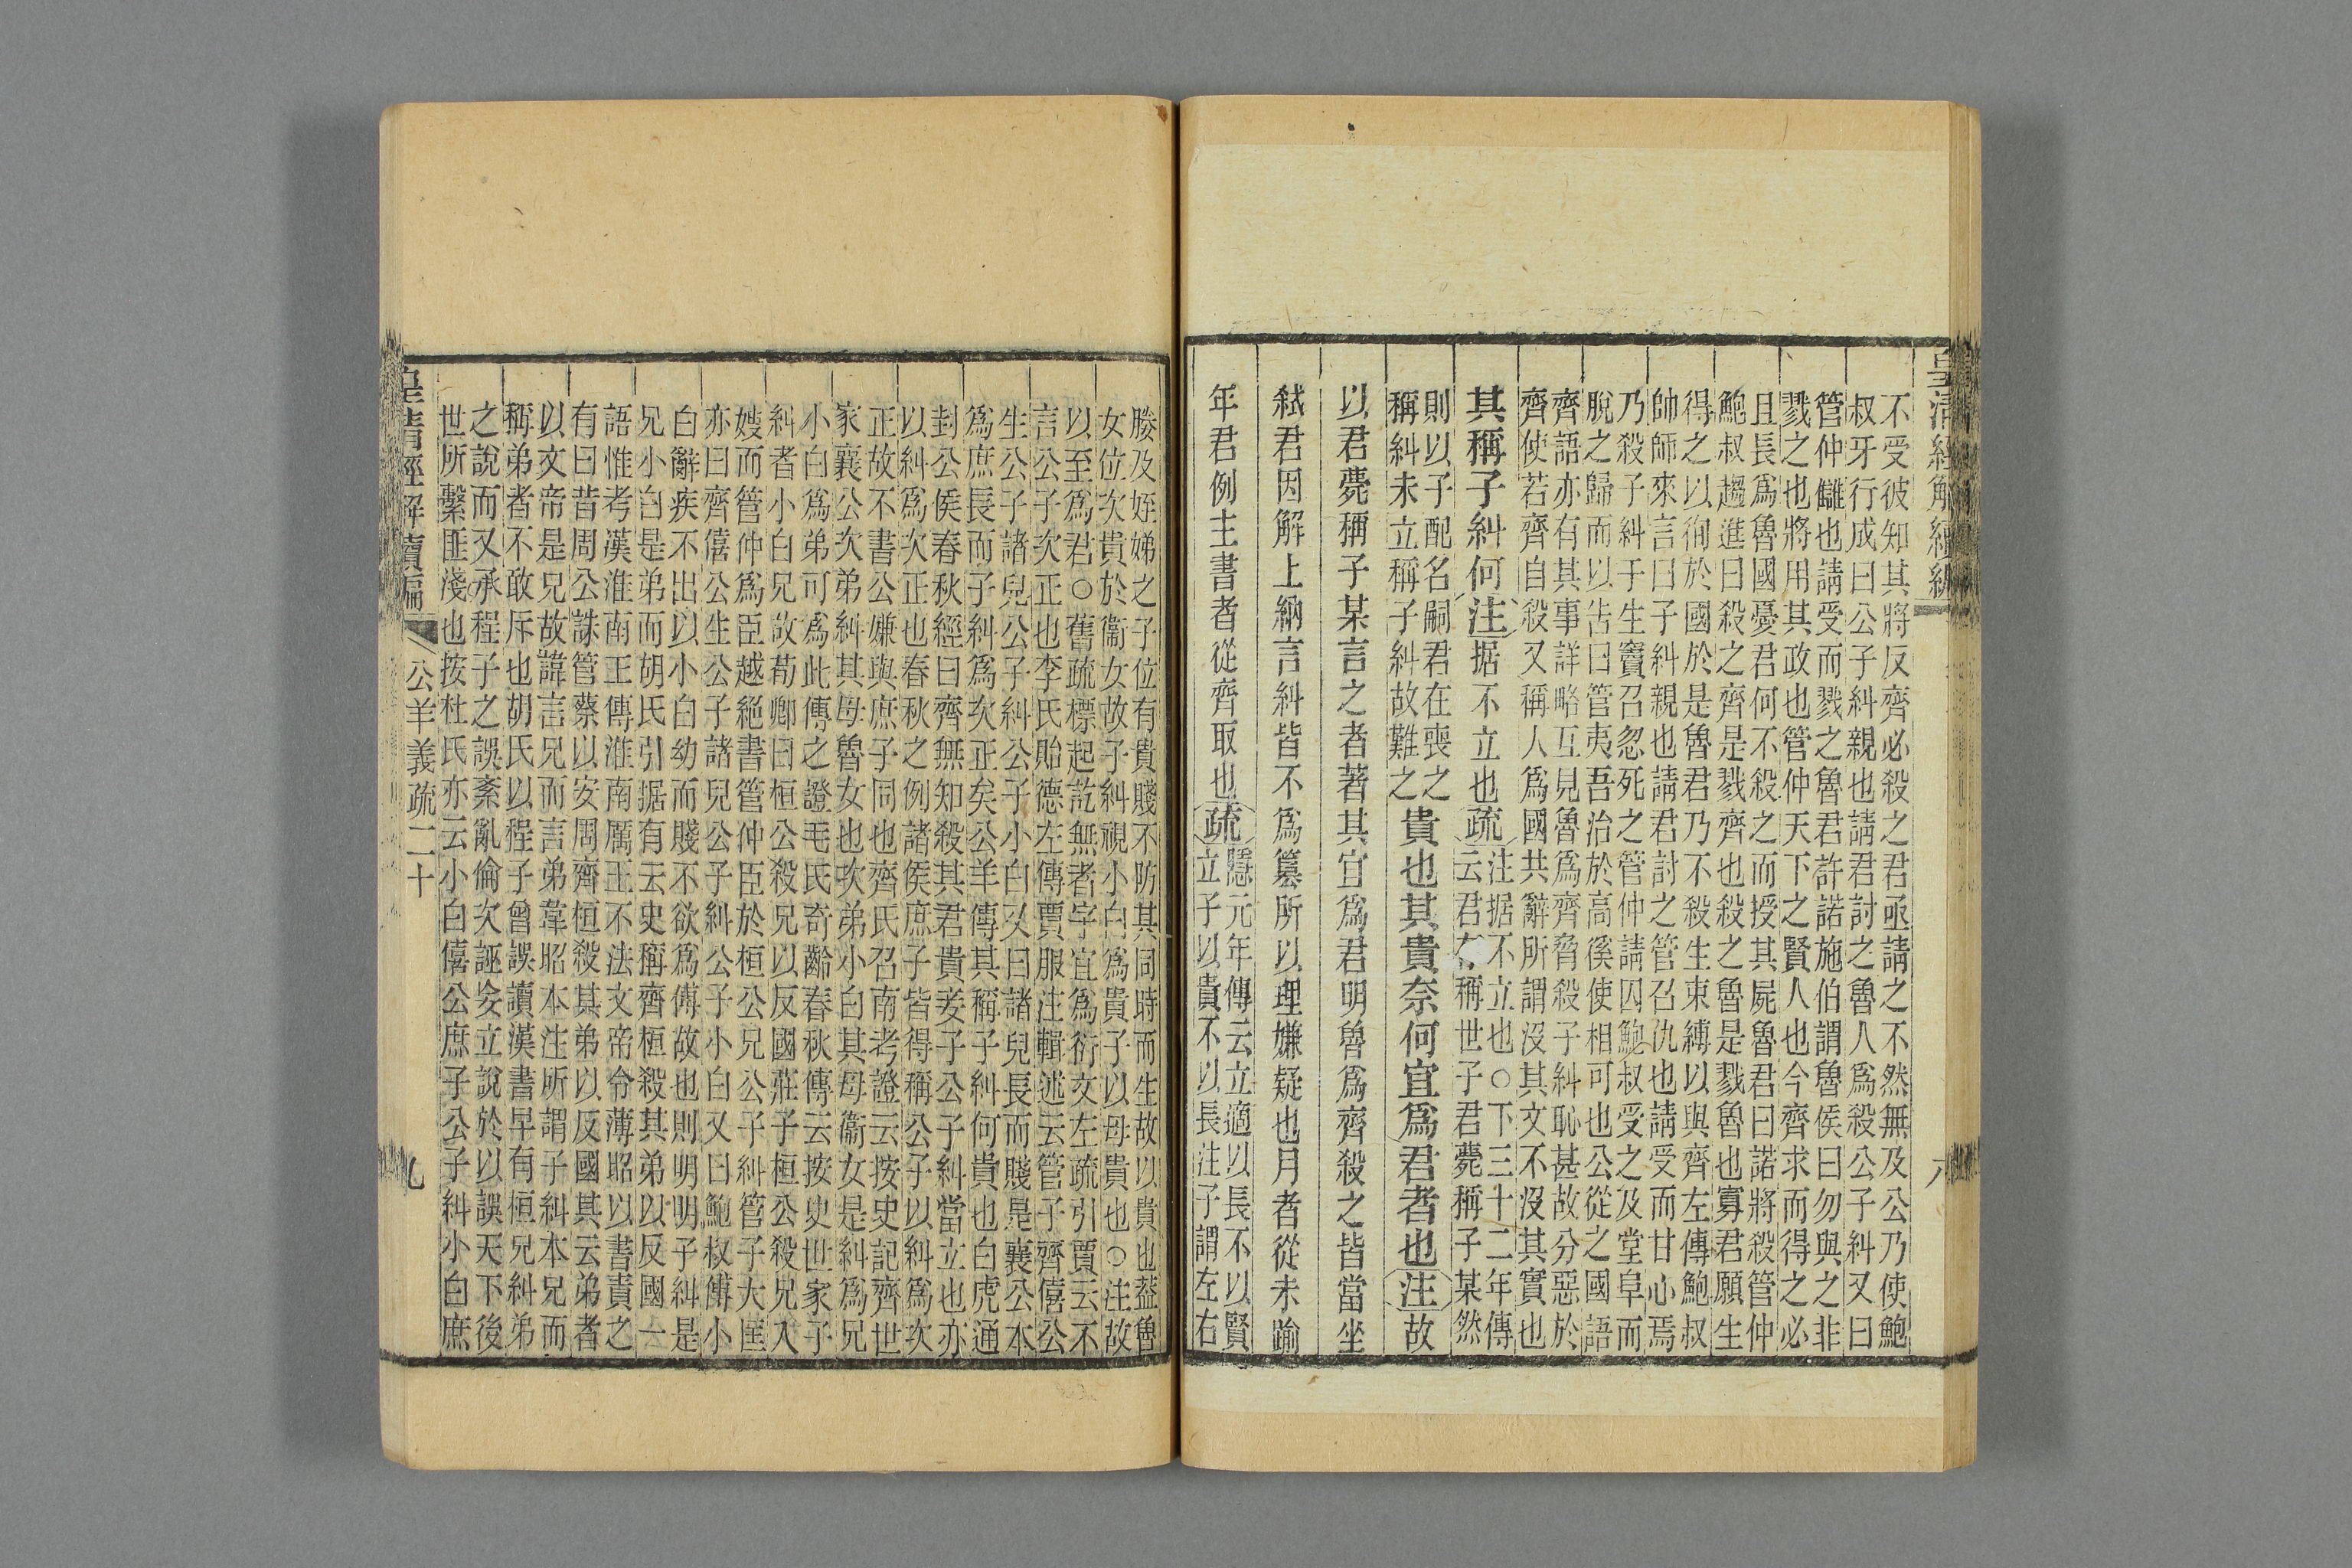 皇清經解續編
不受彼知其將反齊必殺之君亟請之不然無及公乃使鮑
叔牙行成曰公子糾親也請君討之魯人為殺公子糾又曰
管仲讎也請受而戮之魯君許諾施伯謂魯侯曰勿與之非
戮之也將用其政也管仲天下之賢人也今齊求而得之必
且長為魯國憂君何不殺之而授其屍魯君曰諾將殺管仲
鮑叔趨進曰殺之齊是戮齊也殺之魯是戮魯也寡君願生
得之以徇於國於是魯君乃不殺生束縛以與齊左傳鮑叔
帥師來言曰子糾親也請君討之管召仇也請受而甘心焉
乃殺子糾于生竇召忽死之管仲請囚鮑叔受之及堂阜而
脫之歸而以告曰管夷吾治於高徯使相可也公從之國語
齊語亦有其事詳略互見魯為齊脅殺子糾恥甚故分惡於
齊使若齊自殺又稱人為國共辭所謂沒其文不沒其實也
其稱子糾何注据不立也疏注据不立也○下三十二年傳
云君存稱世子君薨稱子某然
則以子配名嗣君在喪之
稱糾未立稱子糾故難之貴也其貴奈何宜為君者也注故
以君薨稱子某言之者著其宜為君明魯為齊殺之皆當坐
弒君因解上納言糾皆不為篡所以理嫌疑也月者從未踰
年君例主書者從齊取也疏隱元年傳云立適以長不以賢
立子以貴不以長注子謂左右
媵及姪娣之子位有貴賤不防其同時而生故以貴也蓋魯
女位次貴於衞女故子糾視小白為貴子以母貴也○注故
以至為君○舊疏標起訖無者字宜為衍文左疏引賈云不
言公子次正也李氏貽德左傳賈服注輯述云管子齊僖公
生公子諸兒公子糾公子小白又曰諸兒長而賤是襄公本
為庶長而子糾為次正矣公羊傳其稱子糾何貴也白虎通
封公侯春秋經曰齊無知殺其君貴妾子公子糾當立也亦
以糾為次正也春秋之例諸侯庶子皆得稱公子以糾為次
正故不書公嫌與庶子同也齊氏召南考證云按史記齊世
家襄公次弟糾其母魯女也次弟小白其母衞女是糾為兄
小白為弟可為此傳之證毛氏奇齡春秋傳云按史世家子
糾者小白兄故荀卿曰桓公殺兄以反國莊子桓公殺兄入
嫂而管仲為臣越絕書管仲臣於桓公兄公子糾管子大匡
亦曰齊僖公生公子諸兒公子糾公子小白又曰鮑叔傅小
白辭疾不出以小白幼而賤不欲為傅故也則明明子糾是
兄小白是弟而胡氏引据有云史稱齊桓殺其弟以反國一
語惟考漢淮南王傳淮南厲王不法文帝令薄昭以書責之
有曰昔周公誅管蔡以安周齊桓殺其弟以反國其云弟者
以文帝是兄故諱言兄而言弟韋昭本注所謂子糾本兄而
稱弟者不敢斥也胡氏以程子曾誤讀漢書早有桓兄糾弟
之說而又承程子之誤紊亂倫次誣妄立說於以誤天下後
世所繫匪淺也按杜氏亦云小白僖公庶子公子糾小白庶
皇清經解續編
公羊義疏二十
九